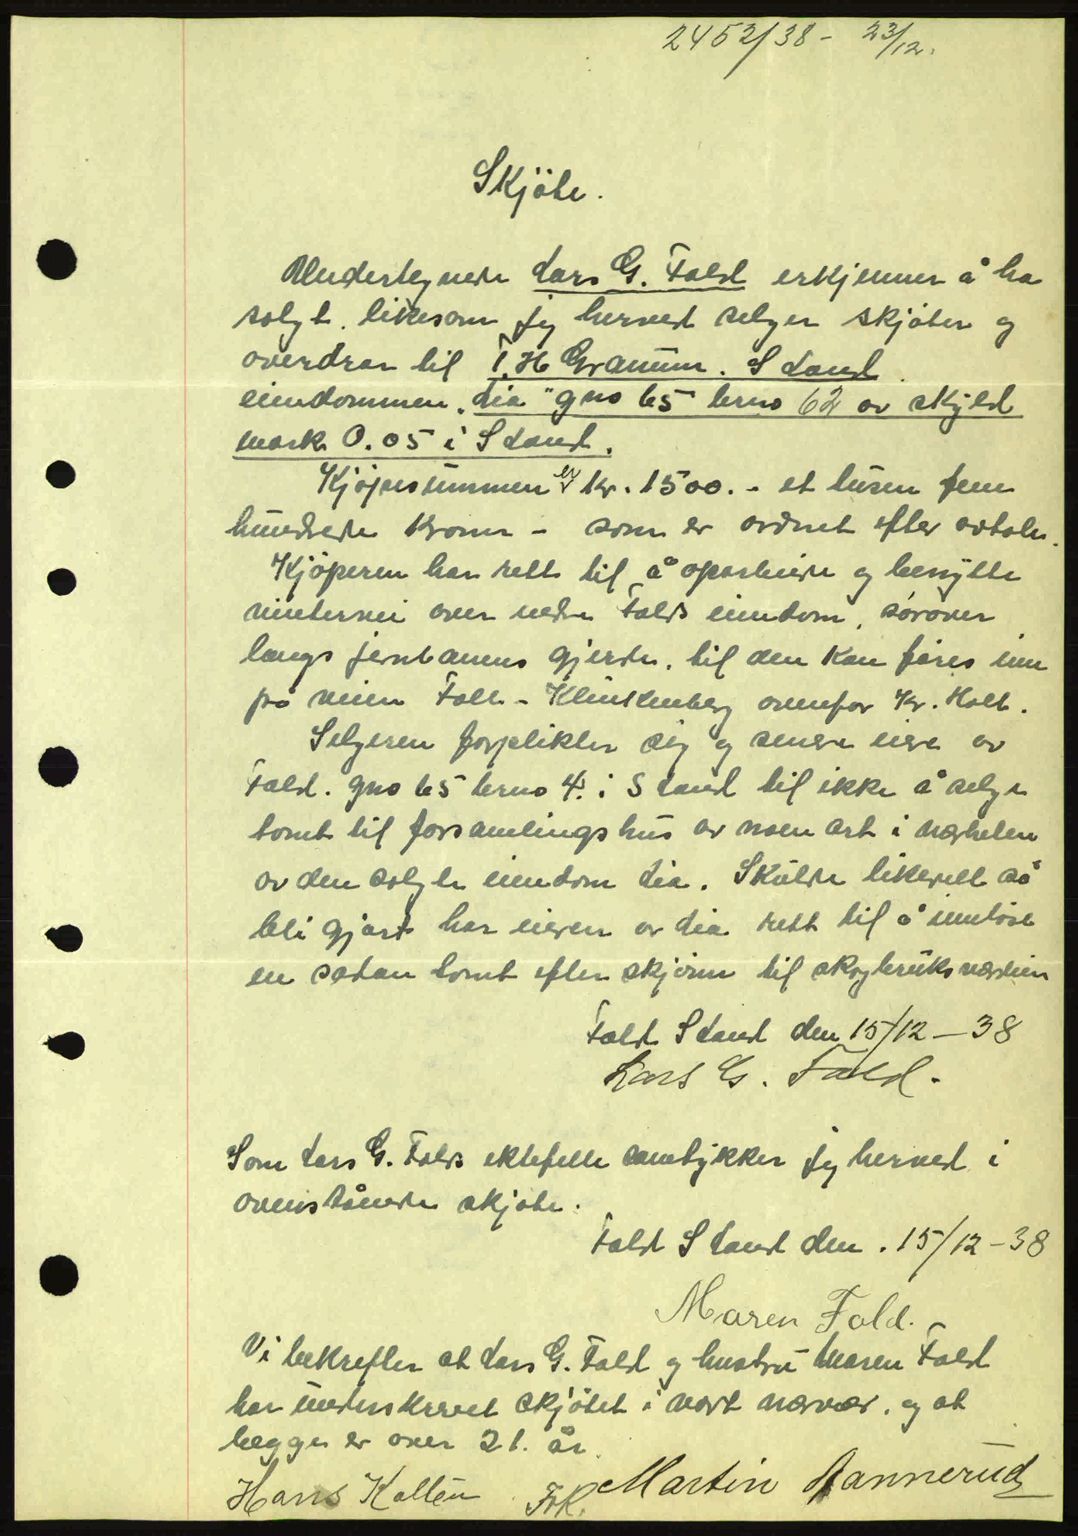 2452/38 - 23/12.
Skjöte.
Undertegnede Lars G. Fald erkjenner å ha
solgt. likesom jeg herved selger skjöter og
overdrar til T. H. Granum. S Land
eiendommen "Lia" gno 65 brno 62 av skyld
mark 0.05 i S Land.
Kjöpesummen er kr. 1500. - et tusen fem
hundrede kroner - som er ordnet efter avtale.
Kjöperen har rett til å oparbeide og benytte
vintervei over nedre Falds eiendom, sörover
langs jernbanens gjerde, til den kan föres inn
på veien Fall - Klinkenberg ovenfor Kr. Holt.
Selgeren forplikter sig og senere eiere av
Fald. gno 65 brno 4. i S Land til ikke å selge
tomt til forsamlingshus av noen art i nærheten
av den solgte eiendom Lia. Skulde likevel så
bli gjort har eieren av Lia rett til å innlöse
en sådan tomt efter skjönn til skogbruksverdien
Fald S Land den 15/12 - 38
Lars G. Fald.
Som Lars G. Falds ektefelle samtykker jeg herved i
ovenstående skjöte.
Fald S Land den . 15/12 - 38
Maren Fald.
Vi bekrefter at Lars G. Fald og hustru Maren Fald
har underskrevet skjötet i vårt nærvær. og at
begge er over 21. år.
Hans Kolten Frk. Martin Rannerud